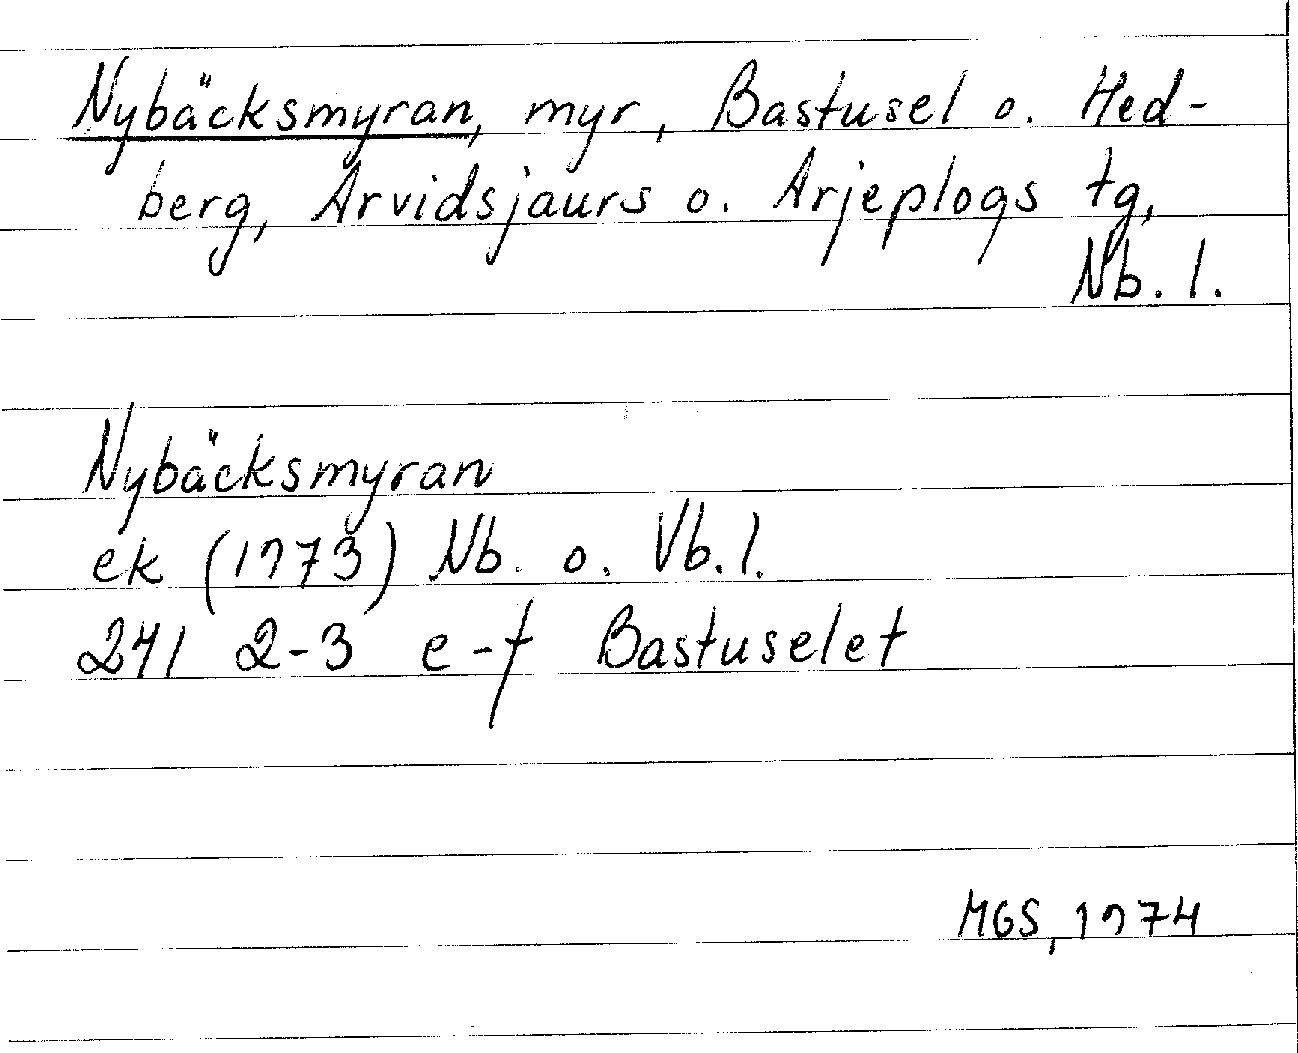 Nybäcksmyran, myr, Bastusel o. Hed-
berg, Arvidsjaurs o. Arjeplogs tg,
Nb. l.
Nybäcksmyran
ek (1973) Nb. o. Vb. l.
241 2-3 e-f Bastuselet
MGS, 1974